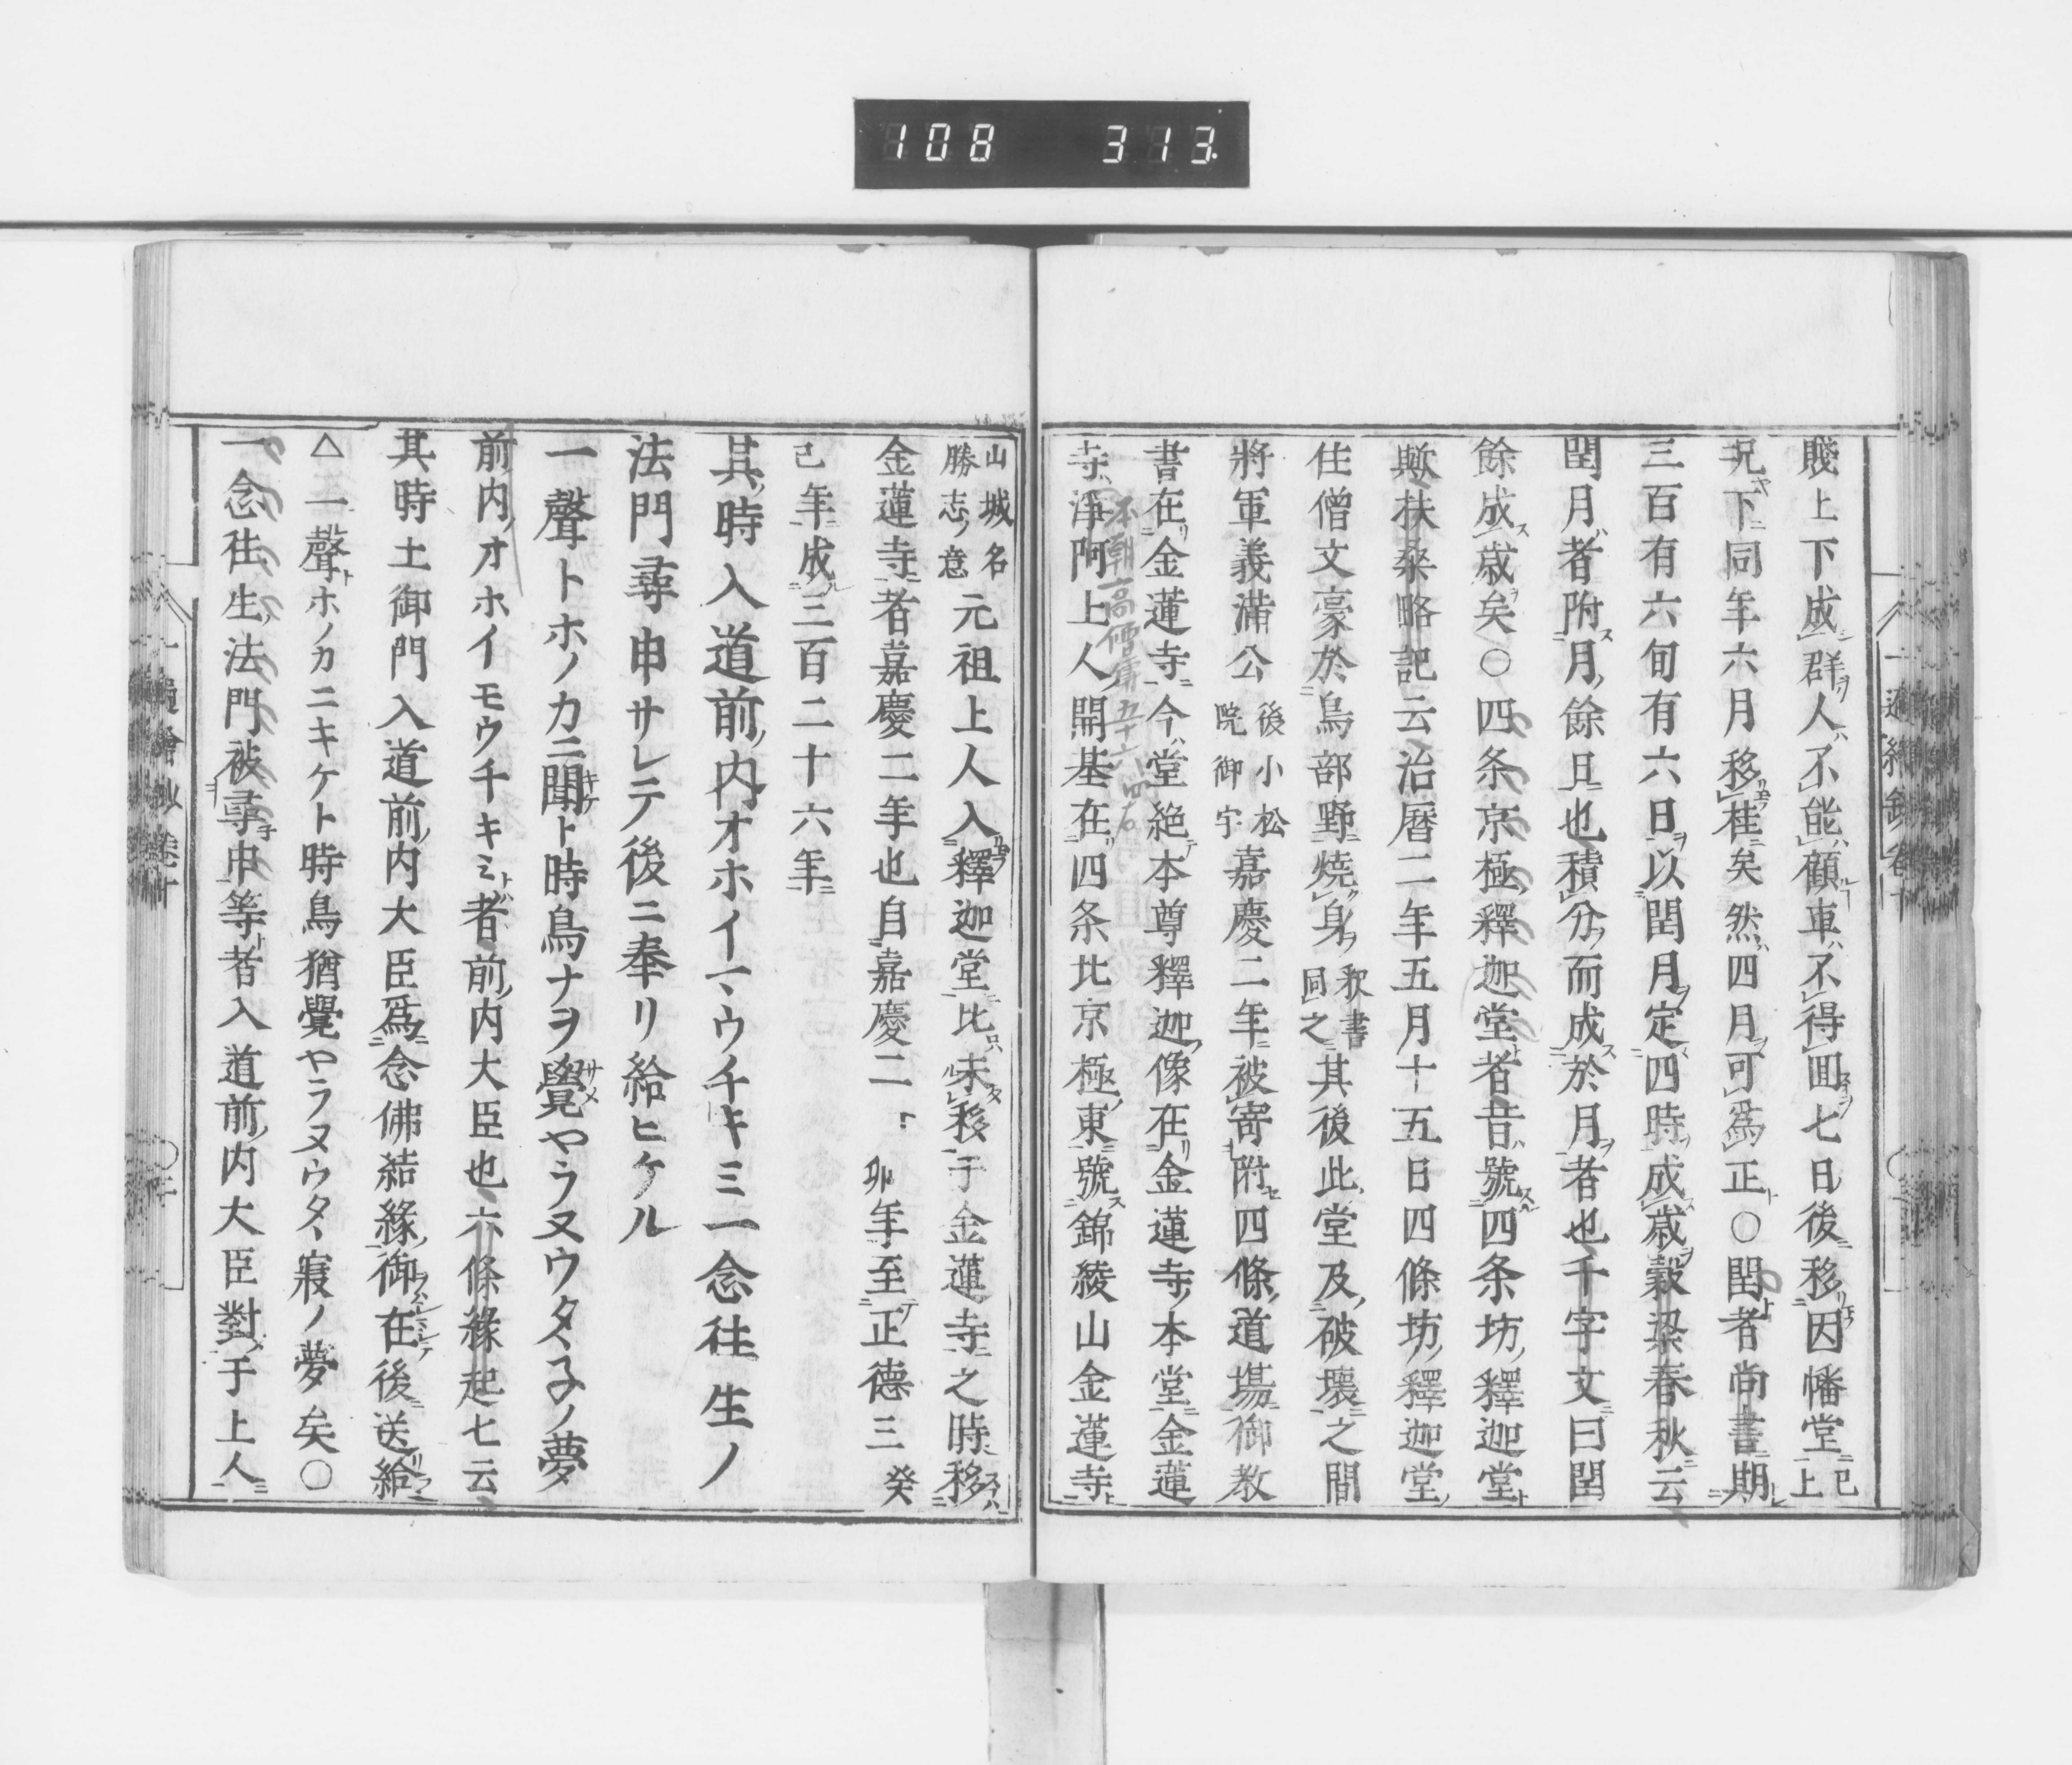 108 313
賤上下成群人不能顧車不得囬七日後移因幡堂已上
况下同年六月移桂矣然四月可為正〇閏者尚書期
三百有六旬有六日以閏月定四時成歳穀梁春秋云
閏月者附月餘日也積分而成於月者也千字文曰閏
餘成歳矣〇四条京極釋迦堂者昔號四条坊釋迦堂
歟扶桑略記云治曆二年五月十五日四條坊釋迦堂
住僧文豪於鳥部野焼身釈書同之其後此堂及破壞之間
將軍義滿公後小松院御宇嘉慶二年被寄附四條道場御教
書在金蓮寺今堂絶本尊釋迦像在金蓮寺本堂金蓮
寺淨阿上人開基在四条比京極東號錦綾山金蓮寺
山城名勝志意元祖上人入釋迦堂比未移于金蓮寺之時移
金蓮寺者嘉慶二年也自嘉慶二年至正德三癸
已年成三百二十六年
其時入道前ノ内オホイマウチキミ一念往生ノ
法門尋申サレテ後ニ奉リ給ヒケル
一聲トホノカニ聞ト時鳥ナヲ覺ヤラヌウタヽ子ノ夢
前ノ内オホイモウチキミトハ者前内大臣也六條縁起七云
其時土御門入道前内大臣爲念佛結緣御在後送給
△一聲トホノカニキケト時鳥猶覺ヤラヌウタヽ寢ノ夢矣〇
一念往生法門被尋申等者入道前内大臣對于上人
一遍繪鈔 卷十